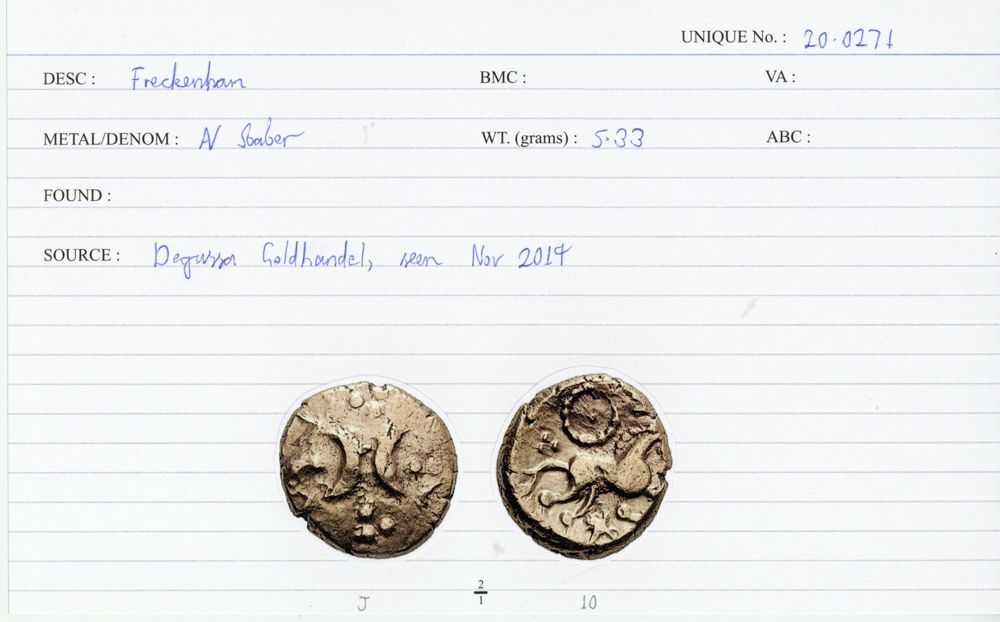 UNIQUE No. : 20.0271
DESC : Freckenham BMC : VA :
METAL/DENOM : N Stater WT. (grams) : 5.33 ABC :
FOUND :
SOURCE : Degussa Goldhandel, seen Nov 2014
2
J 1 10